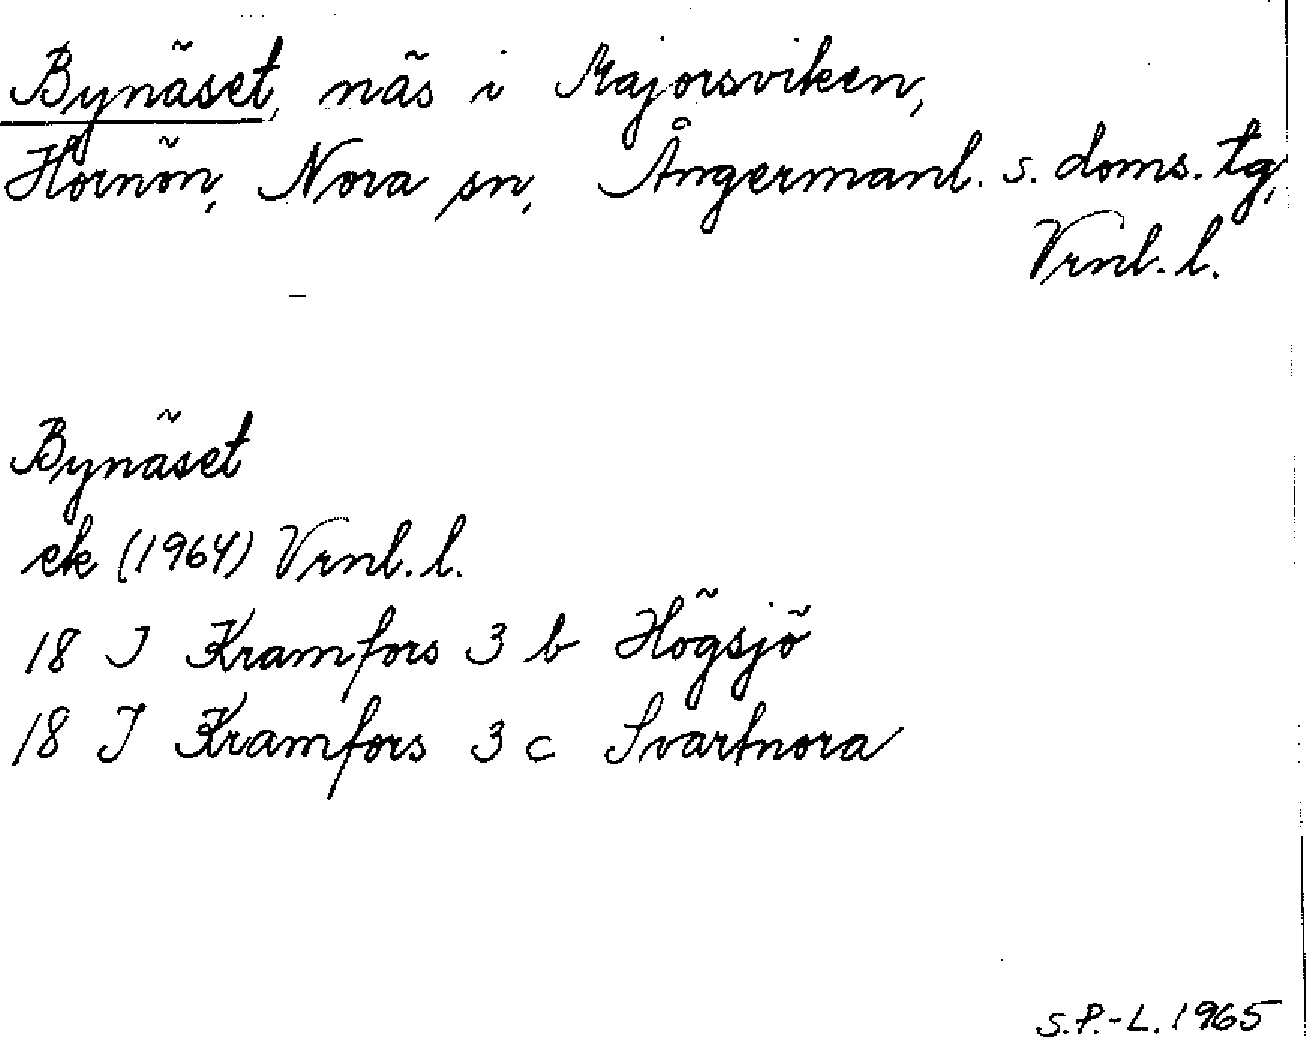 Bynäset, näs i Majorsviken,
Hornön, Nora sn, Ångermanl. s. doms. tg,
Vrnl. l.
Bynäset
ek (1964) Vrnl. l.
18 I Kramfors 3 b Högsjö
18 I Kramfors 3 c Svartnora
S.P.-L. 1965